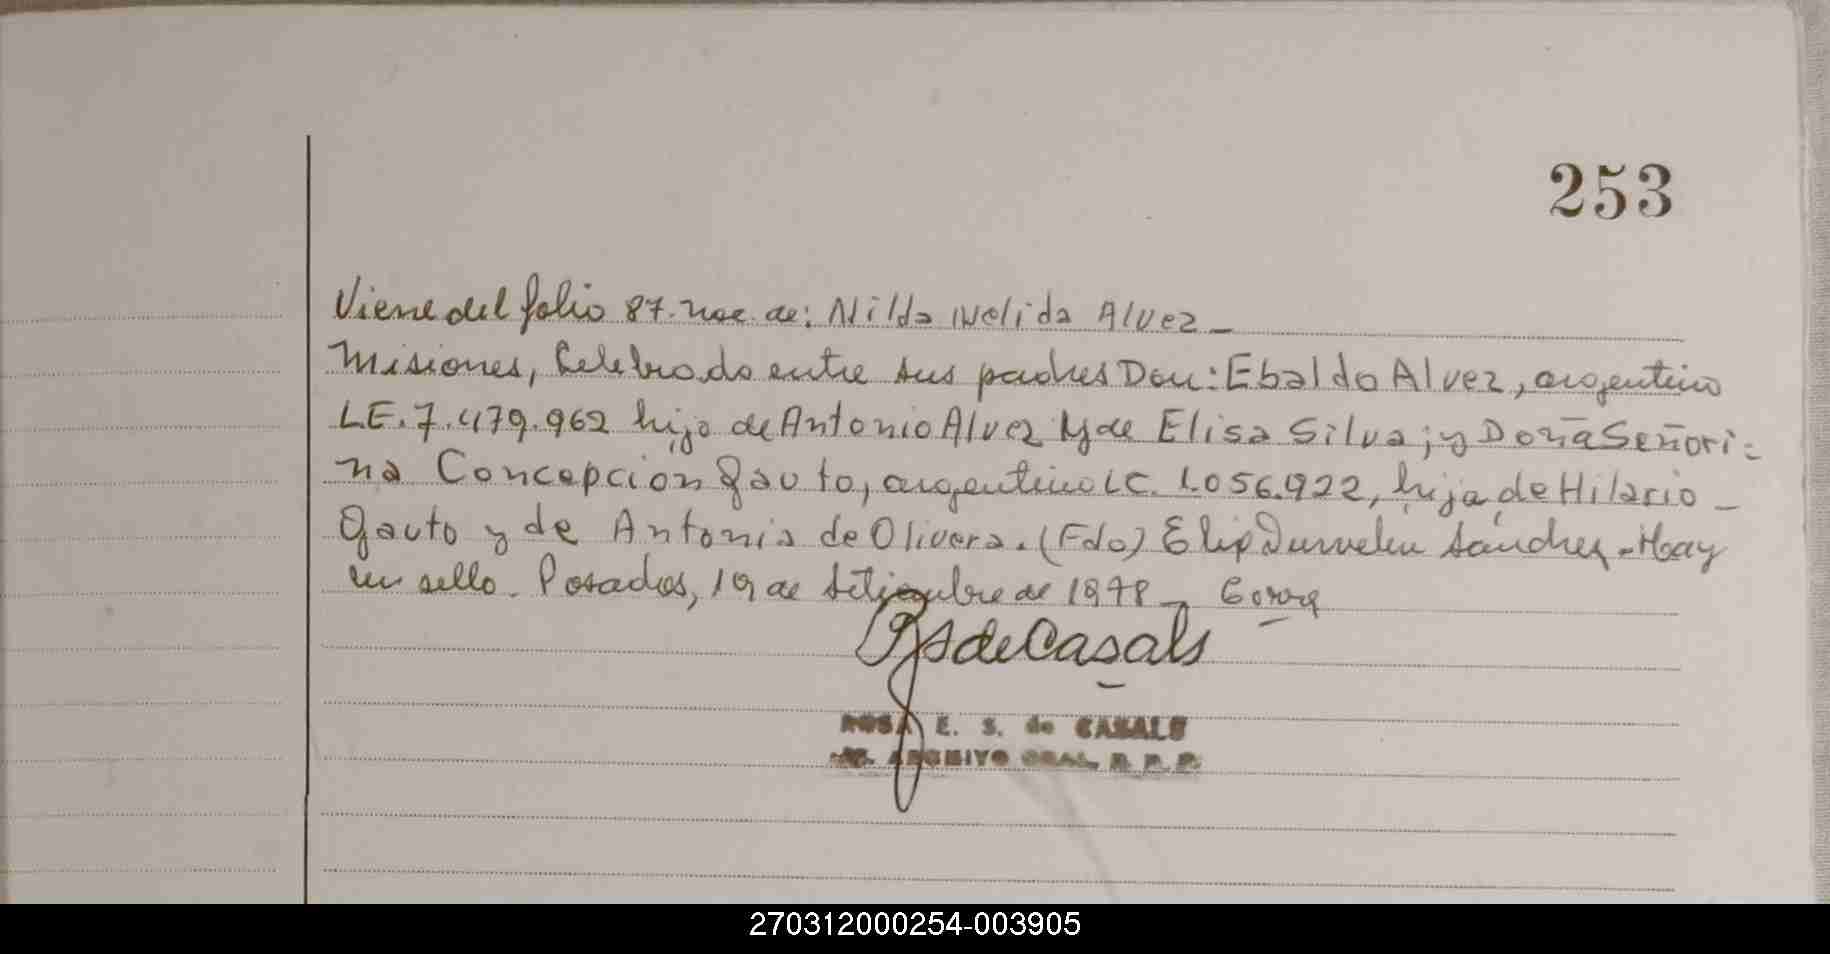 253
Viene del folio 87. nac. de: Nilda Nelida Alvez_
Misiones, Celebrado entre sus padres Don: Ebaldo Alvez, argentino
L.E. 7.479.962 hijo de Antonio Alvez y de Elisa Silva; y Doña Señori=
na Concepcion Gauto, argentino L.C. 1.056.922, hija de Hilario_
Gauto y de Antonia de Olivera. (Fdo) Sánchez - Hay
un sello. Posadas, 19 de Setiembre de 1978_
de Casals
ROSA E. S. de CASALS
ARCHIVO GRAL. R. P. P.
270312000254-003905